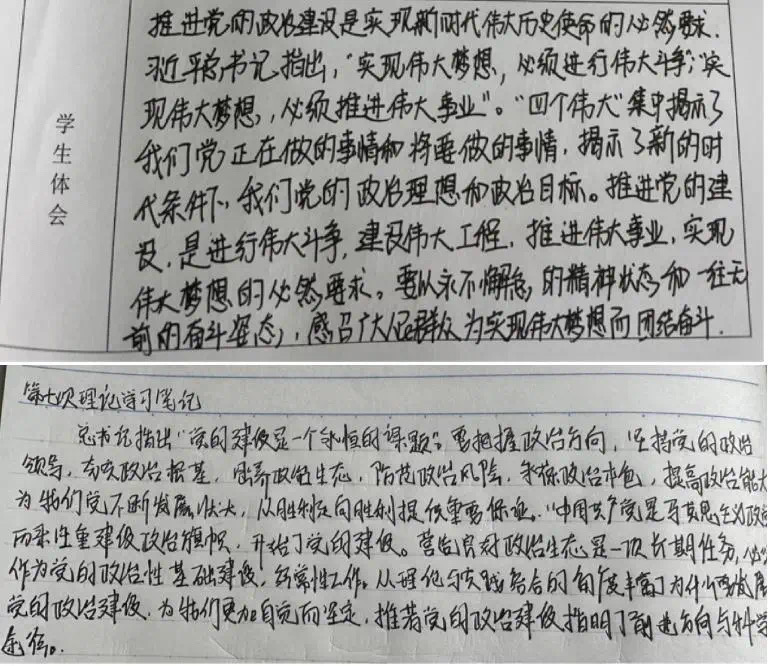 学生体会
推进党的政治建设是实现新时代伟大历史使命的必然要求.
习近平总书记指出,“实现伟大梦想,必须进行伟大斗争”;“实
现伟大梦想,必须推进伟大事业”。“四个伟大”集中揭示了
我们党正在做的事情和将要做的事情,揭示了新的时
代条件下,我们党的政治理想和政治目标。推进党的建
设,是进行伟大斗争,建设伟大工程,推进伟大事业,实现
伟大梦想的必然要求。要以永不懈怠的精神状态和一往无
前的奋斗姿态,感召广大人民群众为实现伟大梦想而团结奋斗.
第七次理论学习笔记
总书记指出“党的建设是一个永恒的课题”。要把握政治方向,坚持党的政治
领导,夯实政治根基,涵养政治生态,防范政治风险,永葆政治本色,提高政治能力
为我们党不断发展壮大,从胜利走向胜利提供重要保证。“中国共产党是马克思主义政党
而来注重建设政治旗帜,开始了党的建设。营造良好政治生态是一项长期任务,必
作为党的政治性基础建设,经常性工作。从理论与实践结合的角度丰富了为什么要发展
党的政治建设,为我们更加自觉而坚定,推着党的政治建设指明了前进方向与科学
途径。